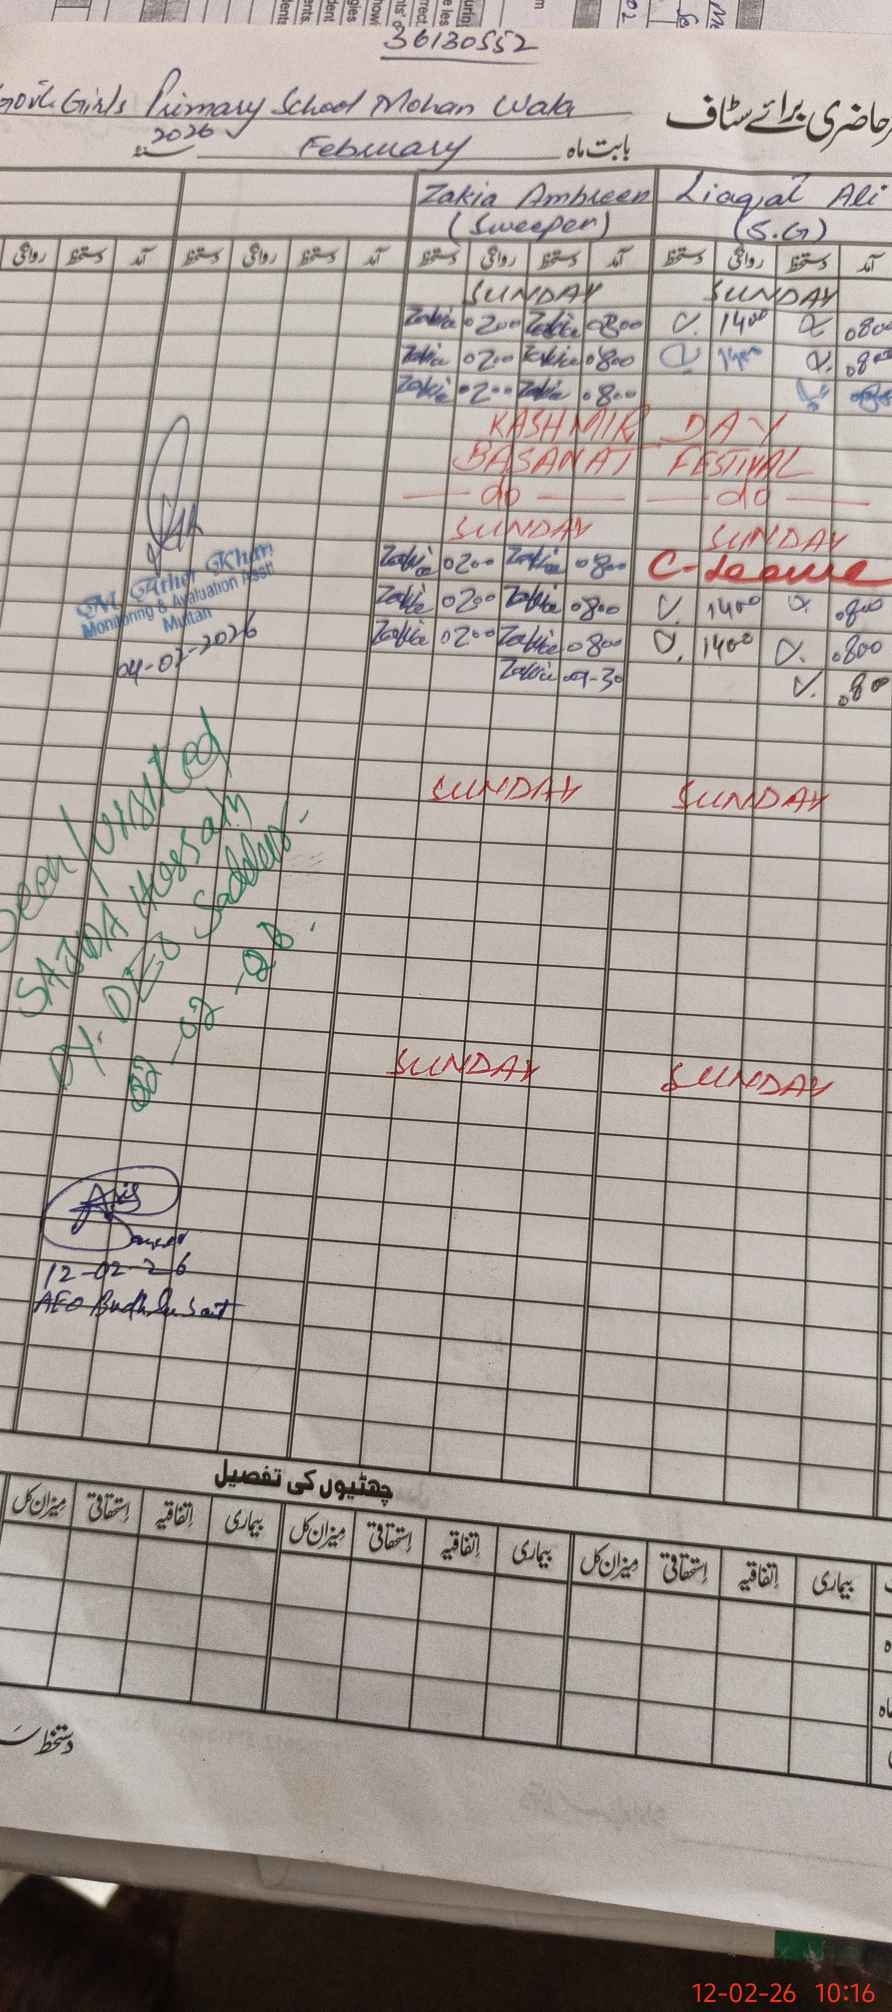 36130552
Govt Girls Primary School Mohan Wala
حاضری برائے سٹاف
2026 February بابت ماہ
Zakia Ambreen Liaqat Ali
(Sweeper) (S.G)
روانگی دستخط آمد دستخط روانگی دستخط آمد دستخط روانگی دستخط آمد دستخط روانگی دستخط آمد
SUNDAY SUNDAY
Zakia 0200 Zakia 0800 1400 .0800
Zakia 0200 Zakia 0800 1400
Zakia 0200 Zakia 0800
KASHMIR DAY
BASANAT FESTIVAL
do do
SUNDAY SUNDAY
Zakia 0200 Zakia 0800 C-Leave
Zakia 0200 Zakia 0800 1400 .0800
Zakia 0200 Zakia 0800 1400 .0800
Zakia 09-30 .0800
Khan
Monitoring & Evaluation Asstt
Multan
04-02-2026
SUNDAY SUNDAY
Seen/visited
SAJIDA Hussain
DY. DEO Saddar.
SUNDAY SUNDAY
12-02-26
AEO
چھٹیوں کی تفصیل
میزان کل استحقاقی اتفاقیہ بیماری میزان کل استحقاقی اتفاقیہ بیماری میزان کل استحقاقی اتفاقیہ بیماری
دستخط
12-02-26 10:16